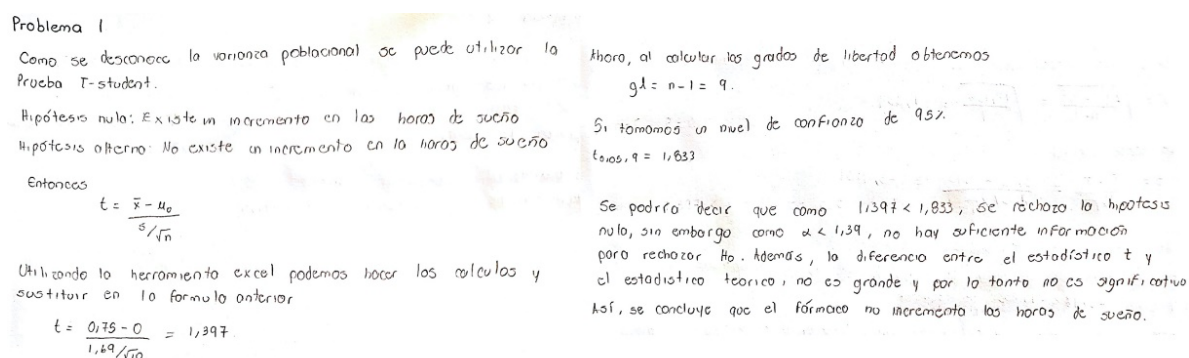 Problema 1
Como se desconoce la varianza poblacional se puede utilizar la
Prueba T-student.
Hipótesis nula: Existe un incremento en las horas de sueño
Hipótesis alterna: No existe un incremento en la horas de sueño
Entonces
t = x̄ - μ₀
s/√n
Utilizando la herramienta excel podemos hacer los calculos y
sustituir en la formula anterior
t = 0,75 - 0 = 1,397.
1,69/√10
Ahora, al calcular los grados de libertad obtenemos
gl = n-1 = 9.
Si tomamos un nivel de confianza de 95%.
t₀,₀₅,₉ = 1,833
Se podría decir que como 1,397 < 1,833, se rechaza la hipotesis
nula, sin embargo como α < 1,39, no hay suficiente información
para rechazar H₀. Además, la diferencia entre el estadístico t y
el estadistico teorico, no es grande y por lo tanto no es significativa
Así, se concluye que el fármaco no incrementa las horas de sueño.